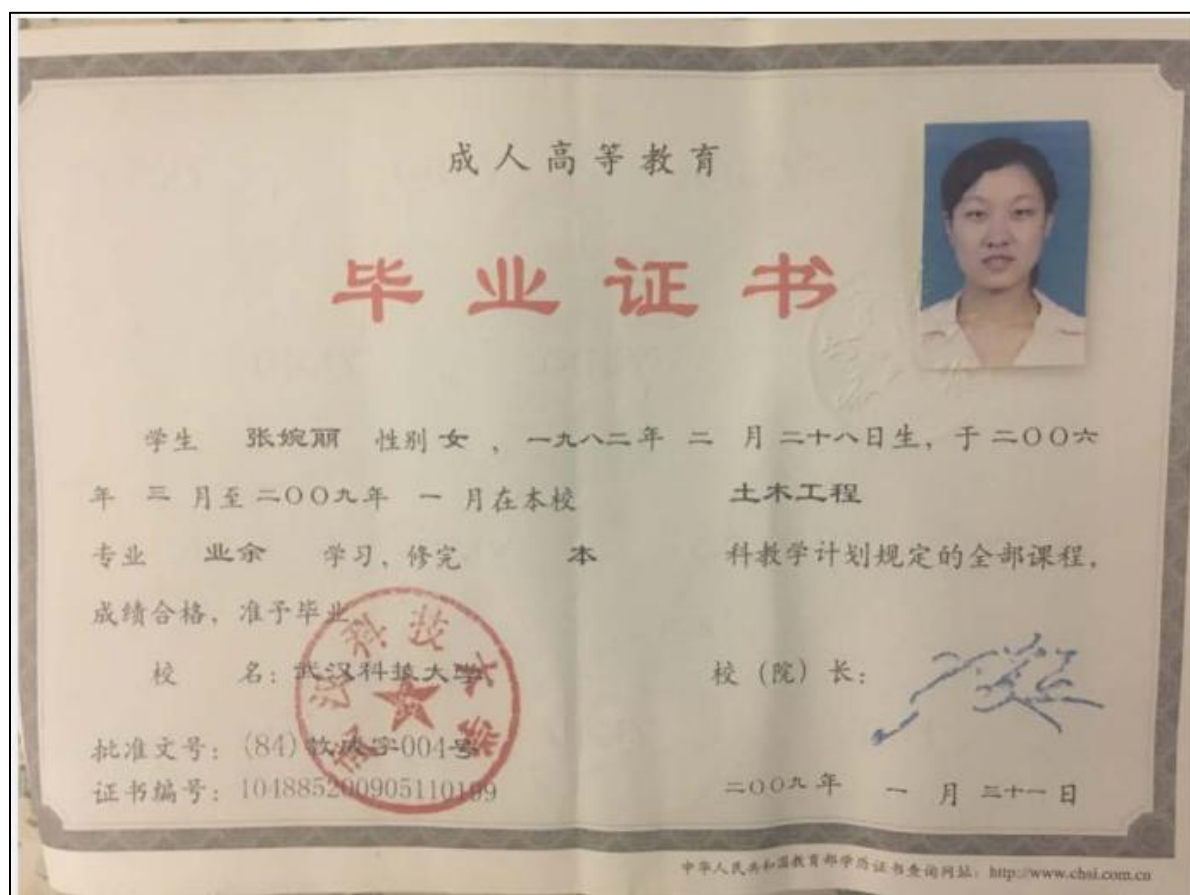 成人高等教育
毕业证书
学生 张婉丽 性别 女 ，一九八二年 二 月 二十八日生，于 二〇〇六
年 三 月至 二〇〇九年 一 月在本校 土木工程
专业 业余 学习，修完 本 科教学计划规定的全部课程，
成绩合格，准予毕业
校 名：武汉科技大学 校（院）长：
批准文号：(84)教成字004号
证书编号：104885200905110109 二〇〇九年 一 月 三十一日
武汉科技大学
中华人民共和国教育部学历证书查询网站：http://www.chsi.com.cn